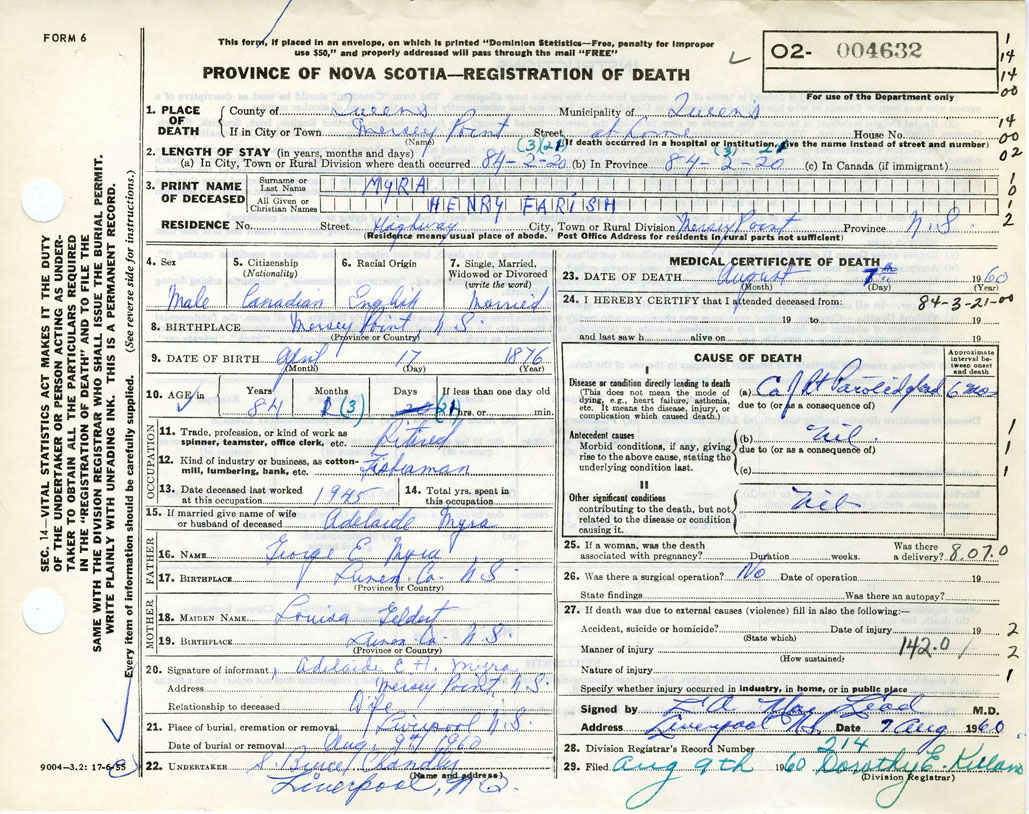 FORM 6
This form, if placed in an envelope, on which is printed "Dominion Statistics—Free, penalty for improper
use $50," and properly addressed will pass through the mail "FREE"
PROVINCE OF NOVA SCOTIA—REGISTRATION OF DEATH
02- 004632
For use of the Department only
1
14
14
00
14
00
02
1. PLACE OF DEATH County of Queens Municipality of Queens
If in City or Town Mersey Point Street at home House No.
(Name) (If death occurred in a hospital or institution, give the name instead of street and number)
2. LENGTH OF STAY (in years, months and days) (3)(21) (3) 21
(a) In City, Town or Rural Division where death occurred 84-2-20 (b) In Province 84-2-20 (c) In Canada (if immigrant)
3. PRINT NAME OF DECEASED Surname or Last Name MYRA
All Given or Christian Names HENRY FARISH
1
0
1
2
RESIDENCE No. Street Highway City, Town or Rural Division Mersey Point Province N.S.
(Residence means usual place of abode. Post Office Address for residents in rural parts not sufficient)
SEC. 14—VITAL STATISTICS ACT MAKES IT THE DUTY
OF THE UNDERTAKER OR PERSON ACTING AS UNDER-
TAKER TO OBTAIN ALL THE PARTICULARS REQUIRED
IN THE "REGISTRATION OF DEATH" AND FILE THE
SAME WITH THE DIVISION REGISTRAR WHO SHALL ISSUE THE BURIAL PERMIT.
WRITE PLAINLY WITH UNFADING INK. THIS IS A PERMANENT RECORD.
Every item of information should be carefully supplied. (See reverse side for instructions.)
4. Sex 5. Citizenship (Nationality) 6. Racial Origin 7. Single, Married, Widowed or Divorced (write the word)
Male Canadian English Married
8. BIRTHPLACE Mersey Point, N.S.
(Province or Country)
9. DATE OF BIRTH April 17 1876
(Month) (Day) (Year)
10. AGE in Years Months Days If less than one day old
84 (3) (21) hrs. or min.
OCCUPATION
11. Trade, profession, or kind of work as spinner, teamster, office clerk, etc. Retired
12. Kind of industry or business, as cotton-mill, lumbering, bank, etc. Fisherman
13. Date deceased last worked at this occupation 1945 14. Total yrs. spent in this occupation
15. If married give name of wife or husband of deceased Adelaide Myra
FATHER
16. NAME George E. Myra
17. BIRTHPLACE Lunen. Co. N.S.
(Province or Country)
MOTHER
18. MAIDEN NAME Louisa Geldert
19. BIRTHPLACE Lunen. Co. N.S.
(Province or Country)
20. Signature of informant Adelaide E H. Myra
Address Mersey Point, N.S.
Relationship to deceased Wife
21. Place of burial, cremation or removal Liverpool N.S.
Date of burial or removal Aug. 9th/1960
22. UNDERTAKER S. Bruce Chandler
(Name and address)
Liverpool, N.S.
9004—3.2: 17-6-55
MEDICAL CERTIFICATE OF DEATH
23. DATE OF DEATH August 7th 1960
(Month) (Day) (Year)
24. I HEREBY CERTIFY that I attended deceased from: 84-3-21-00
19 to 19
and last saw h alive on 19
CAUSE OF DEATH
Approximate interval between onset and death
I
Disease or condition directly leading to death
(This does not mean the mode of dying, e.g., heart failure, asthenia, etc. It means the disease, injury, or complication which caused death.)
(a) Ca Rt Parotid gland 6 mos
due to (or as a consequence of)
Antecedent causes
Morbid conditions, if any, giving rise to the above cause, stating the underlying condition last.
(b) Nil.
due to (or as a consequence of)
(c)
1
1
1
II
Other significant conditions
contributing to the death, but not related to the disease or condition causing it.
Nil
25. If a woman, was the death associated with pregnancy? Duration weeks. Was there a delivery? 8.07.0
26. Was there a surgical operation? No Date of operation 19
State findings Was there an autopsy?
27. If death was due to external causes (violence) fill in also the following:—
Accident, suicide or homicide? Date of injury 19
(State which)
Manner of injury 142.0 /
(How sustained)
Nature of injury
2
2
1
Specify whether injury occurred in industry, in home, or in public place
Signed by M.D.
Address Liverpool N.S. Date 7 Aug 1960
28. Division Registrar's Record Number 214
29. Filed Aug 9th 1960 Dorothy E. Killam
(Division Registrar)